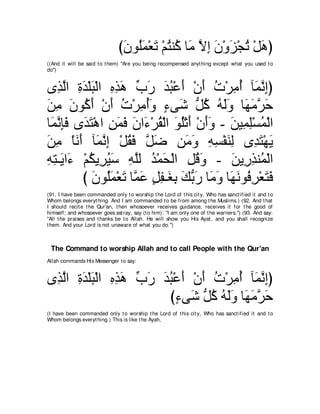 (هَلْ تُجْزَوْنَ إِلاَّ مَا كُنتُمْ تَعْمَلُونَ)
((And it will be said to them) "Are you being recompensed anything except what you used to do")
(إِنَّمَآ أُمِرْتُ أَنْ أَعْبُدَ رَبِّ هَذِهِ الْبَلْدَةِ الَّذِى
حَرَّمَهَا وَلَهُ كُلُّ شَىءٍ وَأُمِرْتُ أَنْ أَكُونَ مِنَ
الْمُسْلِمِينَ - وَأَنْ أَتْلُوَاْ الْقُرْءَانَ فَمَنِ اهْتَدَى فَإِنَّمَا
يَهْتَدِى لِنَفْسِهِ وَمَن ضَلَّ فَقُلْ إِنَّمَآ أَنَاْ مِنَ
الْمُنذِرِينَ - وَقُلِ الْحَمْدُ لِلَّهِ سَيُرِيكُمْ ءَايَـتِهِ
فَتَعْرِفُونَهَا وَمَا رَبُّكَ بِغَـفِلٍ عَمَّا تَعْمَلُونَ )
(91. I have been commanded only to worship the Lord of this city, Who has sanctified it and to Whom belongs everything. And I am commanded to be from among the Muslims.) (92. And that I should recite the Qur'an, then whosoever receives guidance, receives it for the good of himself; and whosoever goes astray, say (to him): "I am only one of the warners.") (93. And say: "All the praises and thanks be to Allah. He will show you His Ayat, and you shall recognize them. And your Lord is not unaware of what you do.")
The Command to worship Allah and to call People with the Qur'an
Allah commands His Messenger to say:
(إِنَّمَآ أُمِرْتُ أَنْ أَعْبُدَ رَبِّ هَذِهِ الْبَلْدَةِ الَّذِى
حَرَّمَهَا وَلَهُ كُلُّ شَىءٍ)
(I have been commanded only to worship the Lord of this city, Who has sanctified it and to Whom belongs everything.) This is like the Ayah,